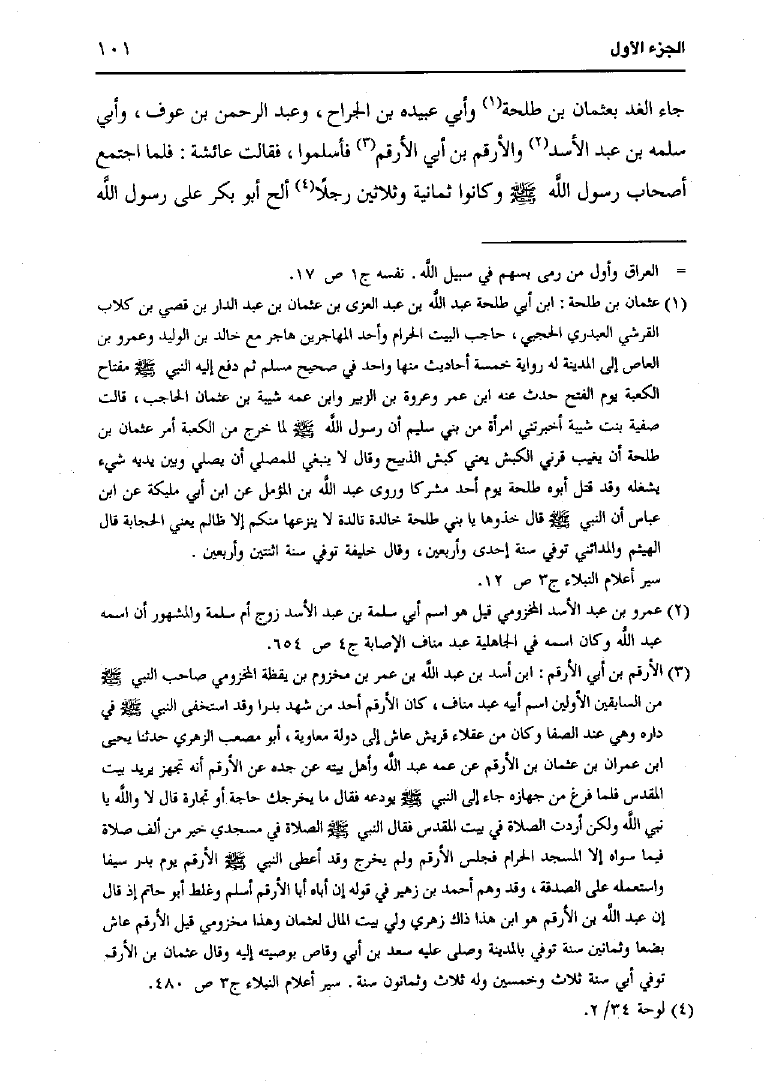 الجزء الأول ١٠١
جاء الغد بعثمان بن طلحة(١) وأبي عبيده بن الجراح ، وعبد الرحمن بن عوف ، وأبي
سلمه بن عبد الأسد(٢) والأرقم بن أبي الأرقم(٣) فأسلموا ، فقالت عائشة : فلما اجتمع
أصحاب رسول اللَّه ﷺ وكانوا ثمانية وثلاثين رجلًا(٤) ألح أبو بكر على رسول اللَّه
= العراق وأول من رمى بسهم في سبيل اللَّه . نفسه ج١ ص ١٧.
(١) عثمان بن طلحة : ابن أبي طلحة عبد اللَّه بن عبد العزى بن عثمان بن عبد الدار بن قصي بن كلاب
القرشي العبدري الحجبي ، حاجب البيت الحرام وأحد المهاجرين هاجر مع خالد بن الوليد وعمرو بن
العاص إلى المدينة له رواية خمسة أحاديث منها واحد في صحيح مسلم ثم دفع إليه النبي ﷺ مفتاح
الكعبة يوم الفتح حدث عنه ابن عمر وعروة بن الزبير وابن عمه شيبة بن عثمان الحاجب ، قالت
صفية بنت شيبة أخبرتني امرأة من بني سليم أن رسول اللَّه ﷺ لما خرج من الكعبة أمر عثمان بن
طلحة أن يغيب قرني الكبش يعني كبش الذبيح وقال لا ينبغي للمصلي أن يصلي وبين يديه شيء
يشغله وقد قتل أبوه طلحة يوم أحد مشركا وروى عبد اللَّه بن المؤمل عن ابن أبي مليكة عن ابن
عباس أن النبي ﷺ قال خذوها يا بني طلحة خالدة تالدة لا ينزعها منكم إلا ظالم يعني الحجابة قال
الهيثم والمدائني توفي سنة إحدى وأربعين ، وقال خليفة توفي سنة اثنتين وأربعين .
سير أعلام النبلاء ج٣ ص ١٢.
(٢) عمرو بن عبد الأسد المخزومي قيل هو اسم أبي سلمة بن عبد الأسد زوج أم سلمة والمشهور أن اسمه
عبد اللَّه وكان اسمه في الجاهلية عبد مناف الإصابة ج٤ ص ٦٥٤.
(٣) الأرقم بن أبي الأرقم : ابن أسد بن عبد اللَّه بن عمر بن مخزوم بن يقظة المخزومي صاحب النبي ﷺ
من السابقين الأولين اسم أبيه عبد مناف ، كان الأرقم أحد من شهد بدرا وقد استخفى النبي ﷺ في
داره وهي عند الصفا وكان من عقلاء قريش عاش إلى دولة معاوية ، أبو مصعب الزهري حدثنا يحيى
ابن عمران بن عثمان بن الأرقم عن عمه عبد اللَّه وأهل بيته عن جده عن الأرقم أنه تجهز يريد بيت
المقدس فلما فرغ من جهازه جاء إلى النبي ﷺ يودعه فقال ما يخرجك حاجة أو تجارة قال لا واللَّه يا
نبي اللَّه ولكن أردت الصلاة في بيت المقدس فقال النبي ﷺ الصلاة في مسجدي خير من ألف صلاة
فيما سواه إلا المسجد الحرام فجلس الأرقم ولم يخرج وقد أعطى النبي ﷺ الأرقم يوم بدر سيفا
واستعمله على الصدقة ، وقد وهم أحمد بن زهير في قوله إن أباه أبا الأرقم أسلم وغلط أبو حاتم إذ قال
إن عبد اللَّه بن الأرقم هو ابن هذا ذاك زهري ولي بيت المال لعثمان وهذا مخزومي قيل الأرقم عاش
بضعا وثمانين سنة توفي بالمدينة وصلى عليه سعد بن أبي وقاص بوصيته إليه وقال عثمان بن الأرقم
توفي أبي سنة ثلاث وخمسين وله ثلاث وثمانون سنة . سير أعلام النبلاء ج٣ ص ٤٨٠.
(٤) لوحة ٢/٣٤.